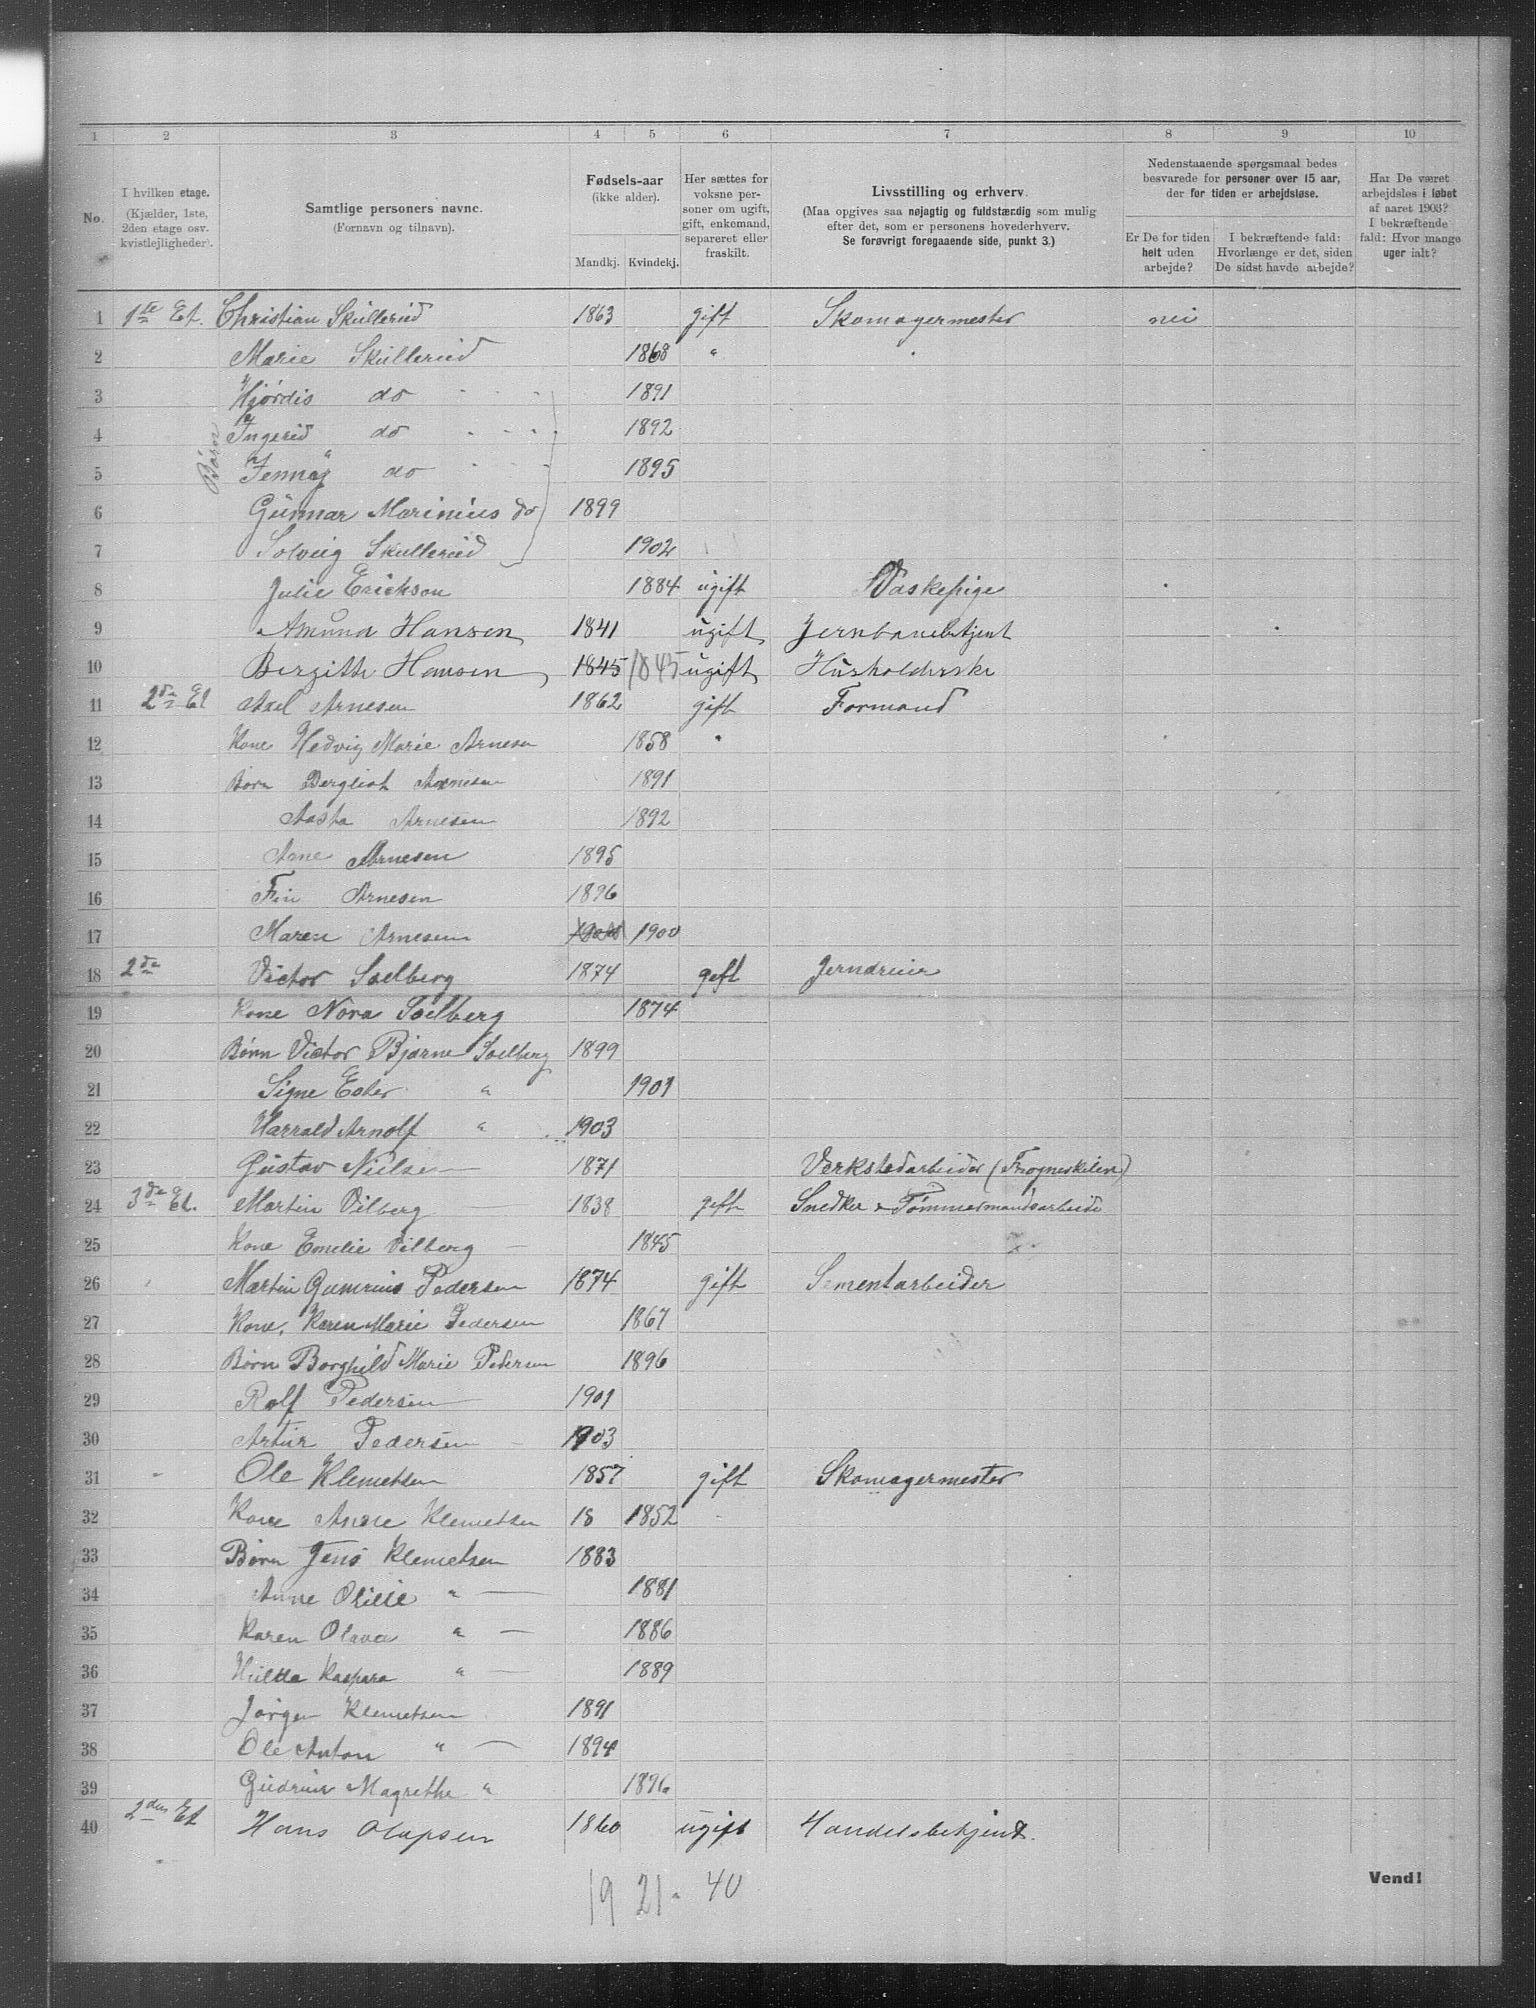 1 2 3 4 5 6 7 8 9 10
No. I hvilken etage. (Kjælder, 1ste, 2den etage osv. kvistlejligheder). Samtlige personers navne. (Fornavn og tilnavn). Fødsels-aar (ikke alder). Mandkj. Kvindekj. Her sættes for voksne personer om ugift, gift, enkemand, separeret eller fraskilt. Livsstilling og erhverv. (Maa opgives saa nøjagtig og fuldstændig som mulig efter det, som er personens hovederhverv. Se forøvrigt foregaaende side, punkt 3.) Nedenstaaende spørgsmaal bedes besvarede for personer over 15 aar, der for tiden er arbejdsløse. Er De for tiden helt uden arbejde? I bekræftende fald: Hvorlænge er det, siden De sidst havde arbejde? Har De været arbejdsløs i løbet af aaret 1903? I bekræftende fald: Hvor mange uger ialt?
1 1ste Et. Christian Skullerud 1863 gift Skomagermester nei
2 Marie Skullerud 1868 "
3 Hjørdis do 1891
Børn
4 Ingerid do 1892
5 Jenny do 1895
6 Gunnar Marinius do 1899
7 Solveig Skullerud 1902
8 Julie Erickson 1884 ugift Vaskepige
9 Amund Hansen 1841 ugift Jernbanebetjent
10 Bergithe Hansen 1845 1845 ugift Husholderske
11 2de Et Axel Arnesen 1862 gift Formand
12 Kone Hedvig Marie Arnesen 1858 "
13 Børn Bergliot Arnesen 1891
14 Aasta Arnesen 1892
15 Arne Arnesen 1895
16 Fin Arnesen 1896
17 Maren Arnesen 1900
18 2de Victor Soelberg 1874 gift Jerndreier
19 Kone Nora Soelberg 1874
20 Børn Victor Bjarne Soelberg 1899
21 Signe Ester " 1901
22 Harrald Arnolf " 1903
23 Gustav Nielsen 1871 Verkstedarbeider (Frogneskilen)
24 3de Et. Martin Vilberg 1838 gift Snedker & Tømmermandsarbeide
25 Kone Emelie Vilberg 1845
26 Martin Gumerius Pedersen 1874 gift Sementarbeider
27 Kone, Karen Marie Pedersen 1867
28 Børn Borghild Marie Pedersen 1896
29 Rolf Pedersen 1901
30 Artur Pedersen 1903
31 Ole Klemetsen 1857 gift Skomagermester
32 Kone Anne Klemetsen 18 1852
33 Børn Jens Klemetsen 1883
34 Anne Otilie " 1881
35 Karen Olava " 1886
36 Hulda Kaspara " 1889
37 Jørgen Klemetsen 1891
38 Ole Anton " 1894
39 Gudrun Magrethe " 1896
40 2den Et Hans Olapsen 1860 ugift Handelsbetjent.
19 21 - 40
Vend!